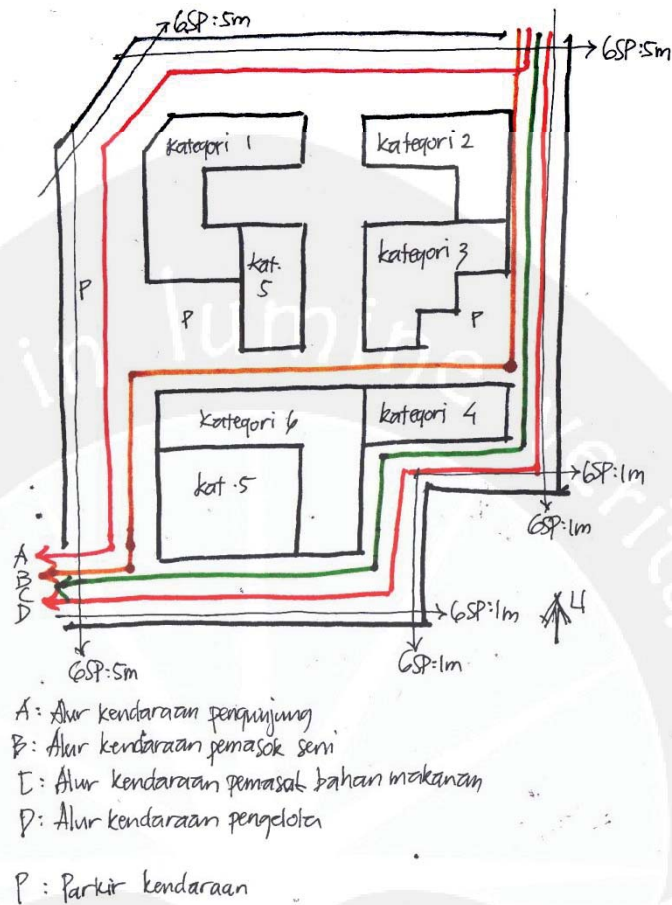 GSP:5m
GSP:5m
kategori 1
kategori 2
kat.
5
kategori 3
P
P
P
kategori 6
kategori 4
kat.5
GSP:1m
GSP:1m
A
B
C
D
GSP:1m
U
GSP:5m
GSP:1m
A: Alur kendaraan pengunjung
B: Alur kendaraan pemasok seni
C: Alur kendaraan pemasok bahan makanan
D: Alur kendaraan pengelola
P: Parkir kendaraan
in lumine verita